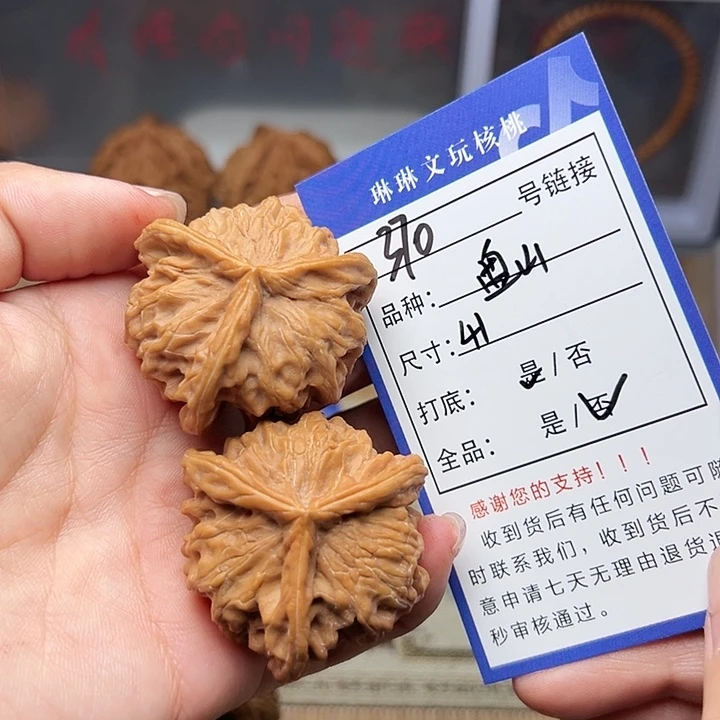 琳琳文玩核桃
370 号链接
品种：盘山
尺寸：41
打底：是/否
全品：是/否
感谢您的支持！！！
收到货后有任何问题可随
时联系我们，收到货后不
意申请七天无理由退货退
秒审核通过。